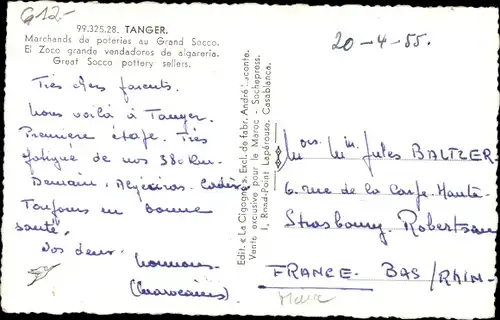 G12-
99.325.28. TANGER.
Marchands de poteries au Grand Socco.
El Zoco grande vendadores de algareria.
Great Socco pottery sellers.
20-4-55.
Très chers parents.
Nous voilà à Tanger.
Première étape. Très
fatigué de nos 380 km.
Demain, Algésiras. Cadix.
Toujours en bonne
santé.
Nos deux
(Marocains)
Edit. « La Cigogne » Excl. de fabr. André Leconte.
Vente exclusive pour le Maroc - Sochepress.
1, Rond-Point Lapérouse. Casablanca.
Mors. Mm Jules BALTZER
6. rue de la Carpe-Haute
Strasbourg. Robertsau
FRANCE. BAS/RHIN-
Maroc